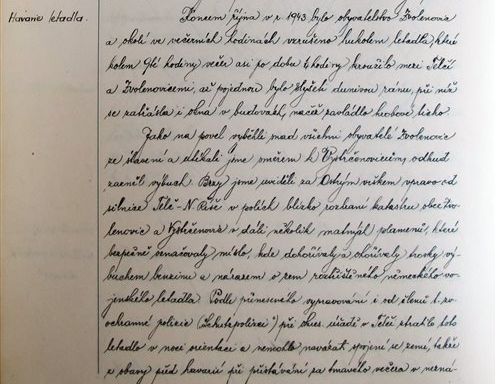 Havarie letadla.
Koncem října v r. 1943 bylo obyvatelstvo Zvolenovic
a okolí ve večerních hodinách vzrušeno hukotem letadla, které
kolem 9té hodiny večer asi po dobu ½ hodiny kroužilo mezi Telčí
a Zvolenovicemi, až pojednou bylo slyšeti dunivou ránu, při níž
se zatřásla i okna v budovách, načež zavládlo hrobové ticho.
Jako na povel vyběhli snad všichni obyvatelé Zvolenovic
ze stavení a utíkali jsme směrem k Vystrčenovicím, odkud
zazněl výbuch. Brzy jsme uviděli za Ostrým vrškem vpravo od
silnice Telč - N. Říše v polích blízko rozhraní katastru obce Zvo-
lenovic a Vystrčenovic v dáli několik matných plamenů, které
bezpečně označovaly místo, kde dohořívaly a ohořívaly trosky vý-
buchem benzinu a nárazem o zem roztříštěného německého vo-
jenského letadla. Podle přineseného vypravování i od členů t. zv.
ochranné policie ("Schutzpolizei") při okres. úřadě v Telči ztratilo toto
letadlo v noci orientaci a nemohlo navázat spojení se zemí, takže
z obavy před havarií při přistávání za tmavého večera v nezná-